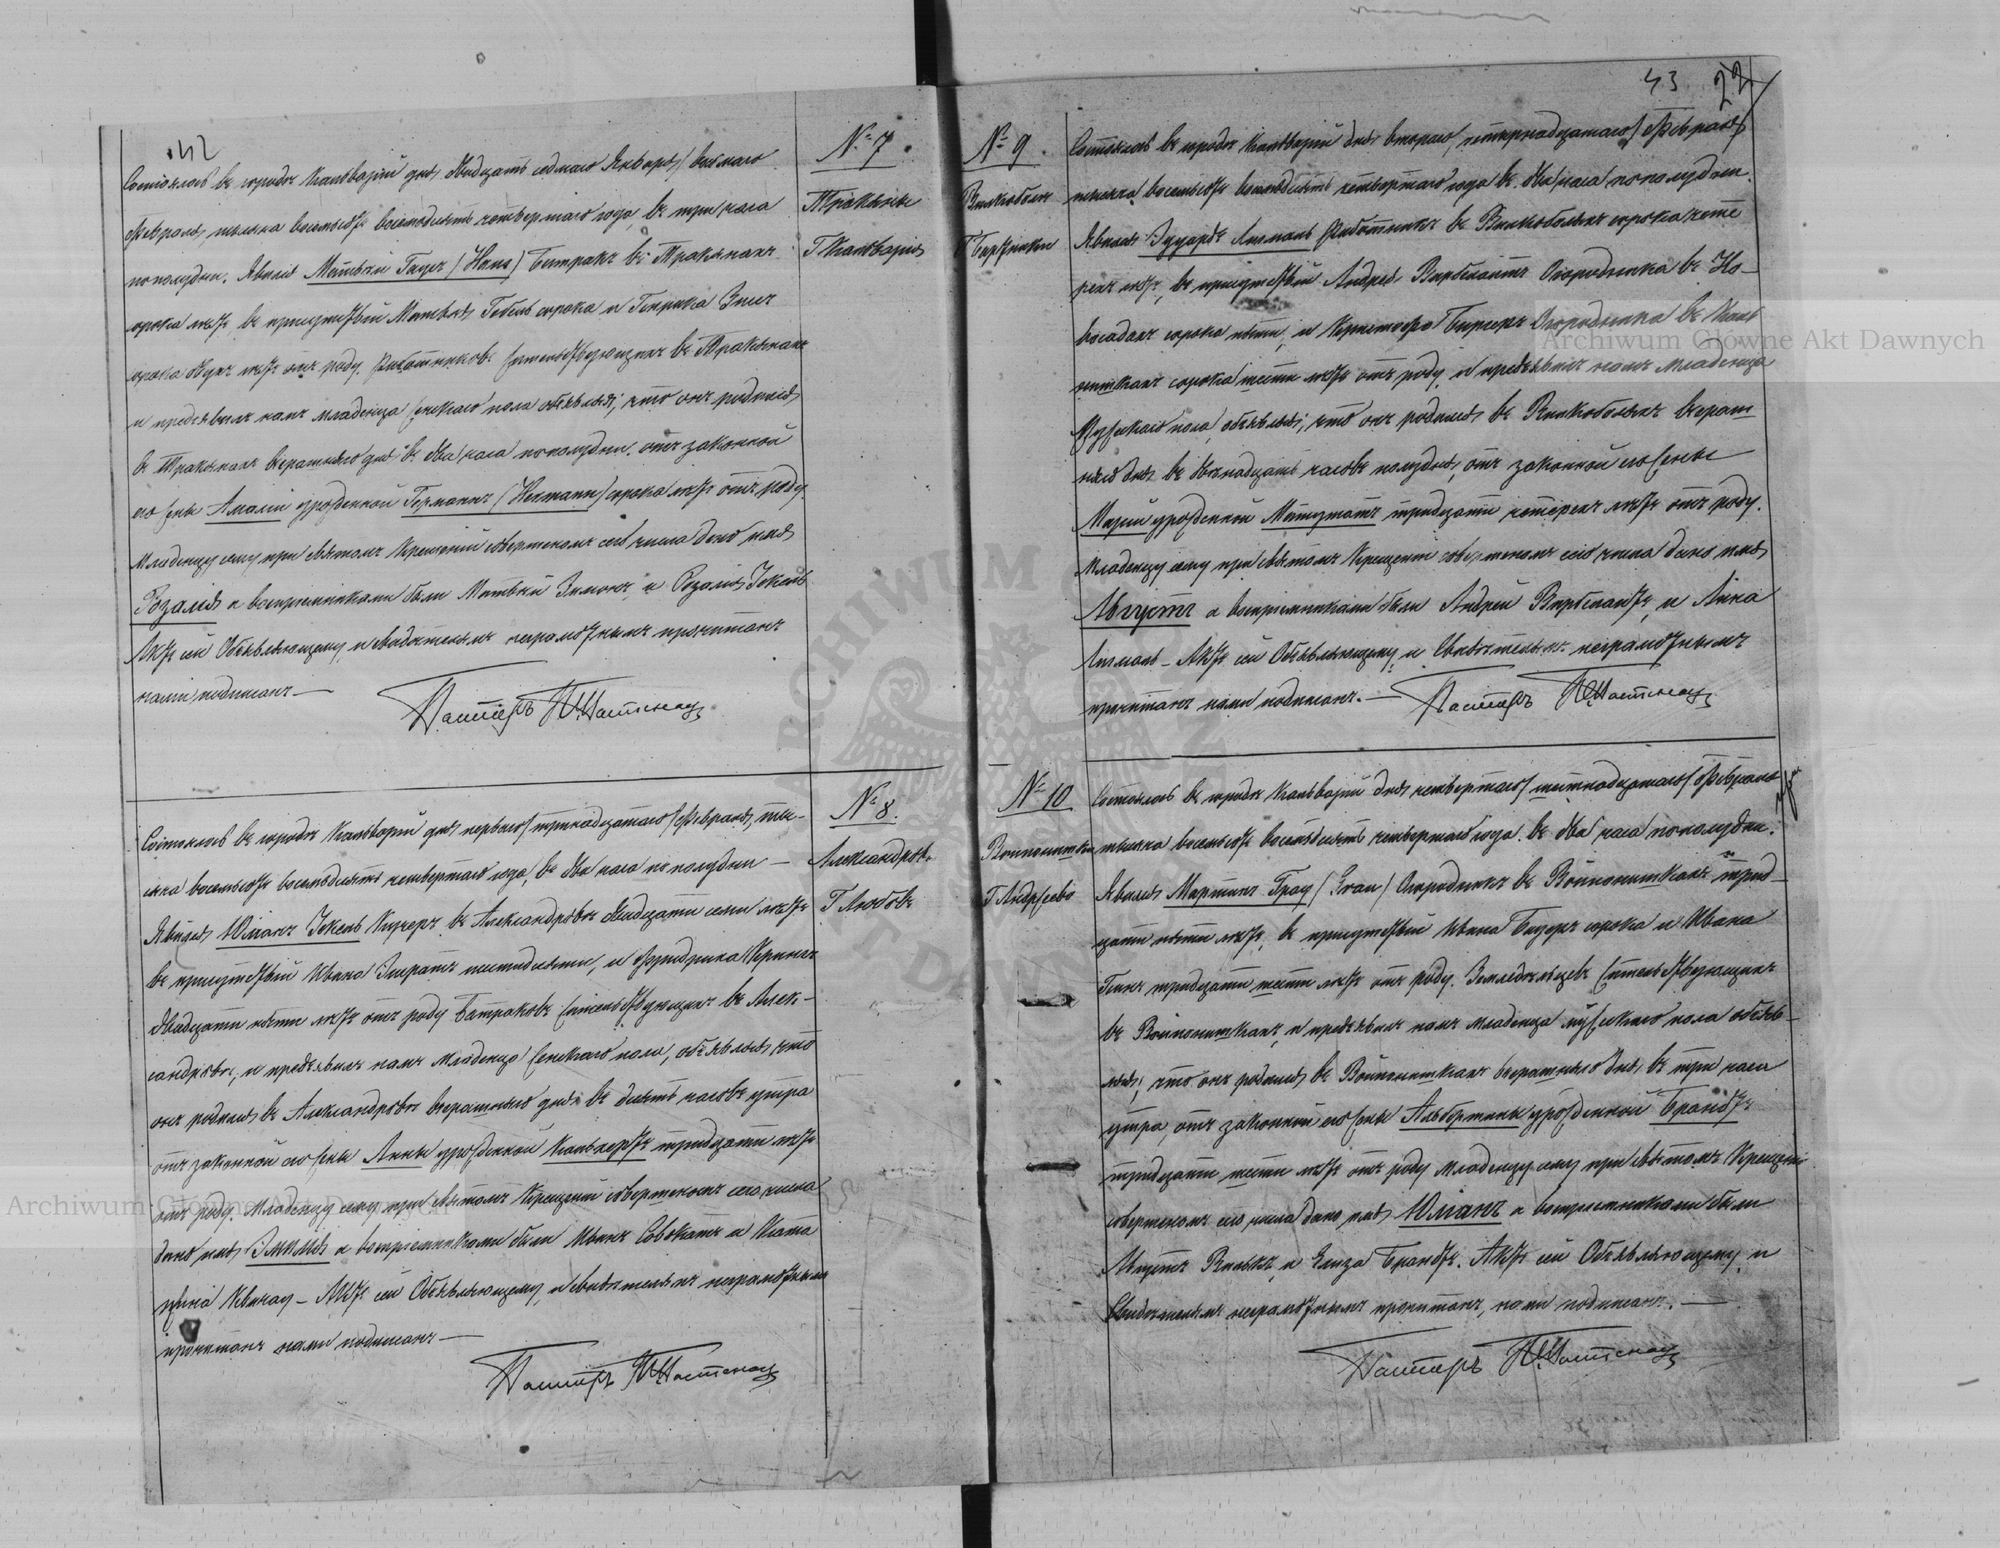 42
№ 7
Тракины
Г. Кальварія
Состоялось въ городѣ Кальваріи дня двадцать седьмаго Января / восьмаго
Февраля, тысяча восемьсотъ восемьдесятъ четвертаго года, въ три часа
пополудни. Явился Матвѣй Гаусъ (Haus) Батракъ въ Тракинахъ
сорока лѣтъ, въ присутствіи Матвѣя Гебель сорока и Генрика
сорока двухъ лѣтъ отъ роду, Работниковъ жительствующихъ въ Тракинахъ
и предъявилъ намъ младенца женскаго пола объявляя, что онъ родился
въ Тракинахъ вчерашняго дня въ два часа пополудни, отъ законной
его жены Амаліи урожденной Германъ (Hermann) сорока лѣтъ отъ роду.
Младенцу сему при святомъ Крещеніи совершеномъ сего числа дано имя
Розалія а воспріемниками были Матвѣй Зимонъ, и Розалія Іекель
Актъ сей Объявляющему и свидѣтелямъ неграмотнымъ прочитанъ
нами подписанъ —
Пасторъ
№ 8.
Александровъ
Г. Любовъ
Состоялось въ городѣ Кальваріи дня перваго / тринадцатаго / Февраля, ты-
сяча восемьсотъ восемьдесятъ четвертаго года, въ два часа пополудни —
Явился Юліанъ Іекель Кучеръ въ Александровѣ двадцати семи лѣтъ
въ присутствіи Ивана шестидесяти, и Фридриха
двадцати пяти лѣтъ отъ роду Батраковъ жительствующихъ въ Алек-
сандровѣ, и предъявилъ намъ младенца женскаго пола, объявляя что
онъ родился въ Александровѣ вчерашняго дня въ десять часовъ утра
отъ законной его жены Анны урожденной тридцати лѣтъ
отъ роду. Младенцу сему при святомъ Крещеніи совершеномъ сего числа
дано имя Эмилія а воспріемниками были Иванъ и
Актъ сей Объявляющему и свидѣтелямъ неграмотнымъ
прочитанъ нами подписанъ —
Пасторъ
43
22
№ 9.
Вилкоболы
Состоялось въ городѣ Кальваріи дня втораго / четырнадцатаго / Февраля
тысяча восемьсотъ восемьдесятъ четвертаго года въ два часа пополудни.
Явился Эдуардъ Лигмаль Работникъ въ Вилкоболахъ сорока четы
рехъ лѣтъ, въ присутствіи Андрея Огородника въ Но-
восадахъ сорока пяти, и Кристофа Бируеръ Огородника въ
сорока шести лѣтъ отъ роду, и предъявилъ намъ младенца
Мужескаго пола, объявляя; что онъ родился въ Вилкоболахъ вчераш
няго дня въ двенадцать часовъ полудня, отъ законной его жены
Маріи урожденной Матузатъ тридцати четырехъ лѣтъ отъ роду.
Младенцу сему при святомъ Крещеніи совершеномъ сего числа дано имя
Августъ а воспріемниками были Андрей и Анна
Лигмаль — Актъ сей Объявляющему, и Свидѣтелямъ неграмотнымъ
прочитанъ нами подписанъ. —
Пасторъ
№ 10
Войпонишки
Г. Андржеево
Состоялось въ городѣ Кальваріи дня четвертаго / шестнадцатаго / Февраля
тысяча восемьсотъ восемьдесятъ четвертаго года. въ два часа пополудни.
Явился Мартинъ Грау (Grau) Огородникъ въ Войпонишкахъ трид-
цати пяти лѣтъ, въ присутствіи Ивана сорока и Ивана
тридцати шести лѣтъ отъ роду. Земледѣльцевъ жительствующихъ
въ Войпонишкахъ, и предъявилъ намъ младенца мужескаго пола объяв-
ляя; что онъ родился въ Войпонишкахъ вчерашняго дня, въ три часа
утра, отъ законной его жены Альбертины урожденной Брандтъ
тридцати шести лѣтъ отъ роду Младенцу сему при святомъ Крещеніи
совершеномъ сего числа дано имя Юліанъ а воспріемниками были
Августъ и Елиза Брандтъ. Актъ сей Объявляющему и
Свидѣтелямъ неграмотнымъ прочитанъ, нами подписанъ. —
Пасторъ
Archiwum Główne Akt Dawnych
Archiwum Główne Akt Dawnych